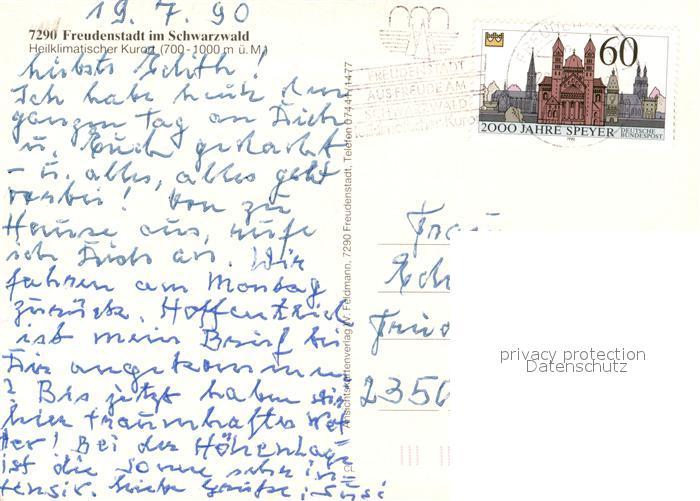 19.7.90
7290 Freudenstadt im Schwarzwald
Heilklimatischer Kurort (700-1000 m ü. M.)
liebste Edith!
Ich habe heute den
ganzen Tag an Dich
u. Euch gedacht
- u. alles, alles geht
vorbei! Von zu
Hause aus, rufe
ich Dich an. Wir
fahren am Montag
zurück. Hoffentlich
ist mein Brief bei
Dir angekommen
? Bis jetzt haben wir
hier traumhaftes Wet
ter! Bei der Höhenlage
ist die Sonne sehr in
tensiv. liebe Grüße, Susi
Ansichtskartenverlag W. Feldmann, 7290 Freudenstadt, Telefon 07441/1477
FREUDENSTADT
AUS FREUDE AM
WALD
Kurort
60
2000 JAHRE SPEYER
DEUTSCHE
BUNDESPOST
1990
Frau
2350
privacy protection
Datenschutz